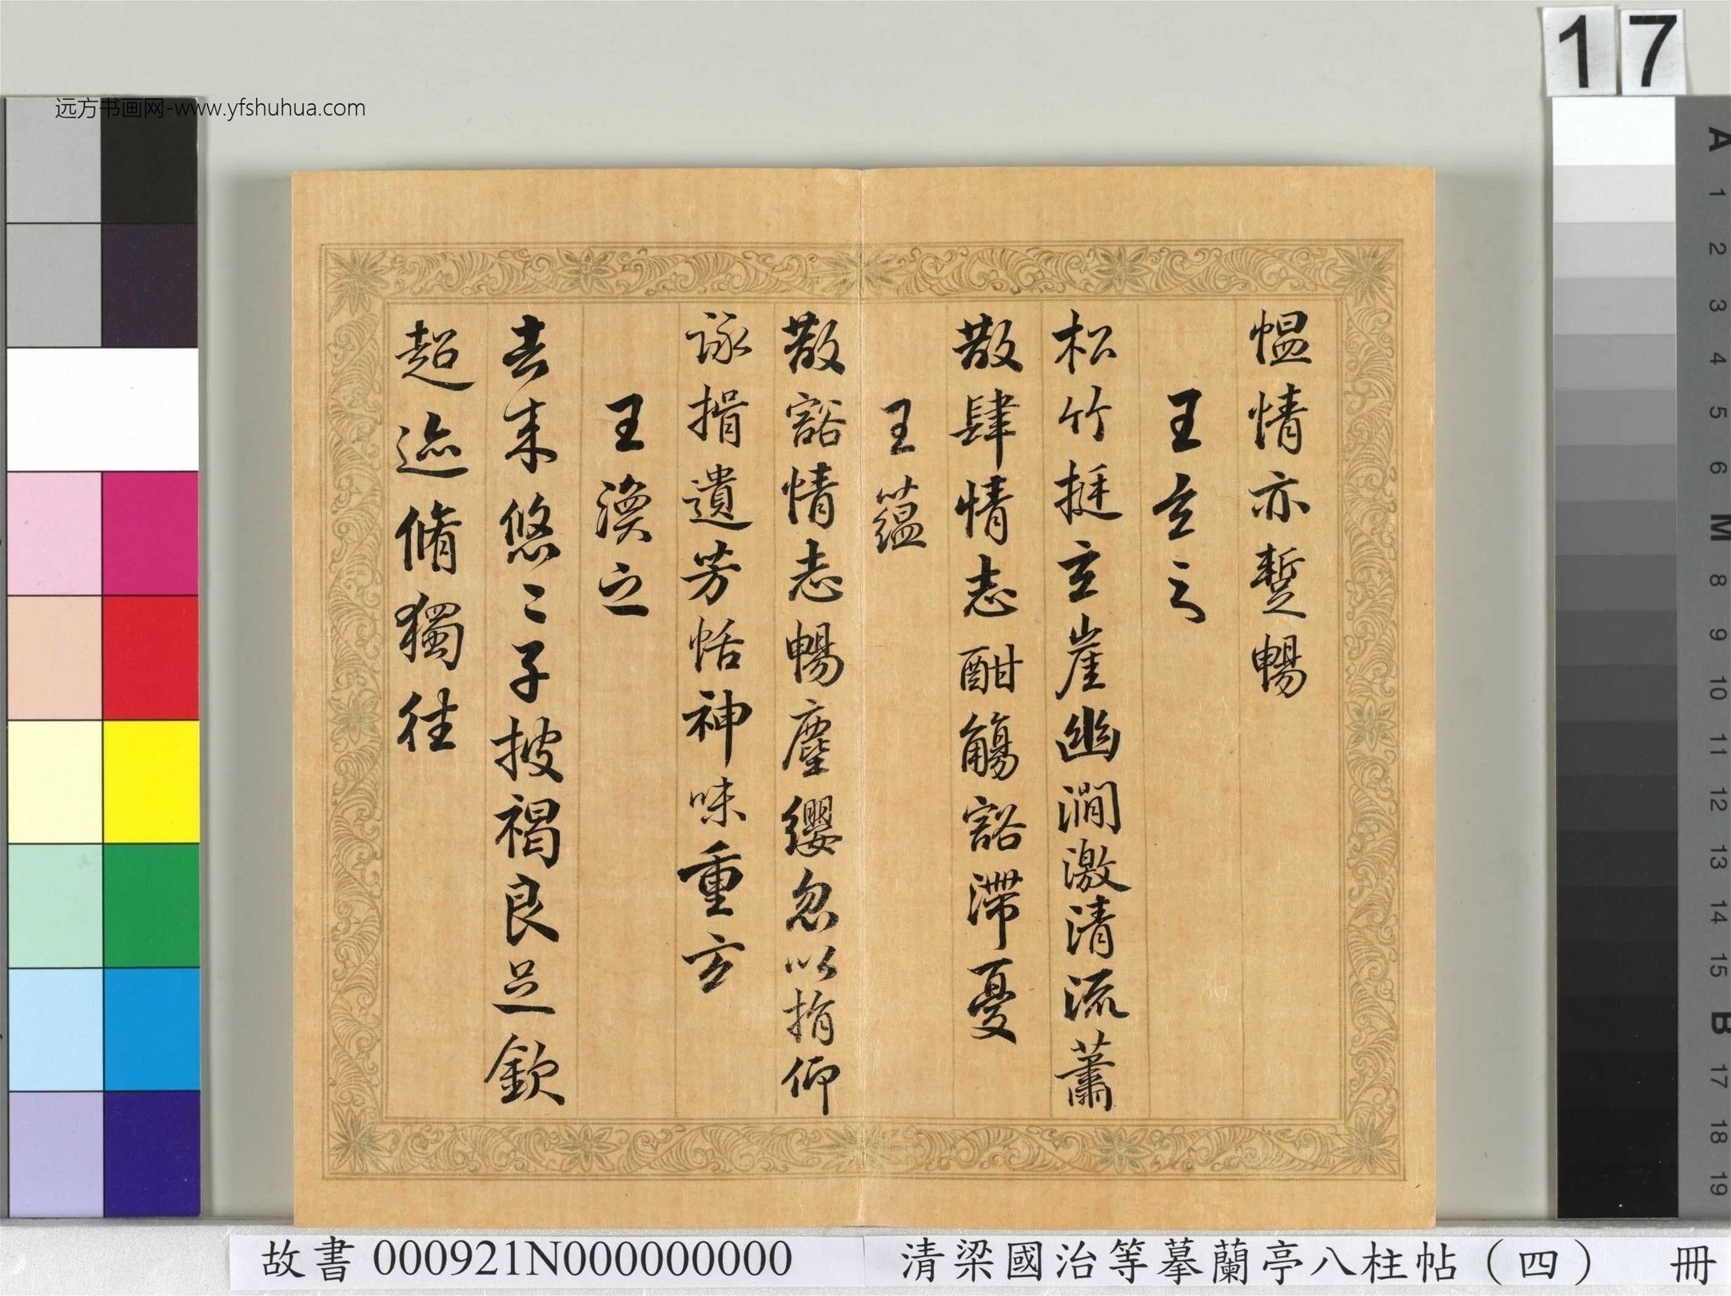 远方书画网-www.yfshuhua.com
17
愠情亦暫暢
王玄之
松竹挺玄崖幽澗激清流蕭
散肆情志酣觴豁滯憂
王蘊
散豁情志暢塵纓忽以捐仰
詠揖遺芳恬神味重玄
王渙之
去来悠〻子披褐良足欽
超迹脩獨往
A
1
2
3
4
5
6
M
8
9
10
11
12
13
14
15
B
17
18
19
故書 000921N000000000
清梁國治等摹蘭亭八柱帖（四） 冊